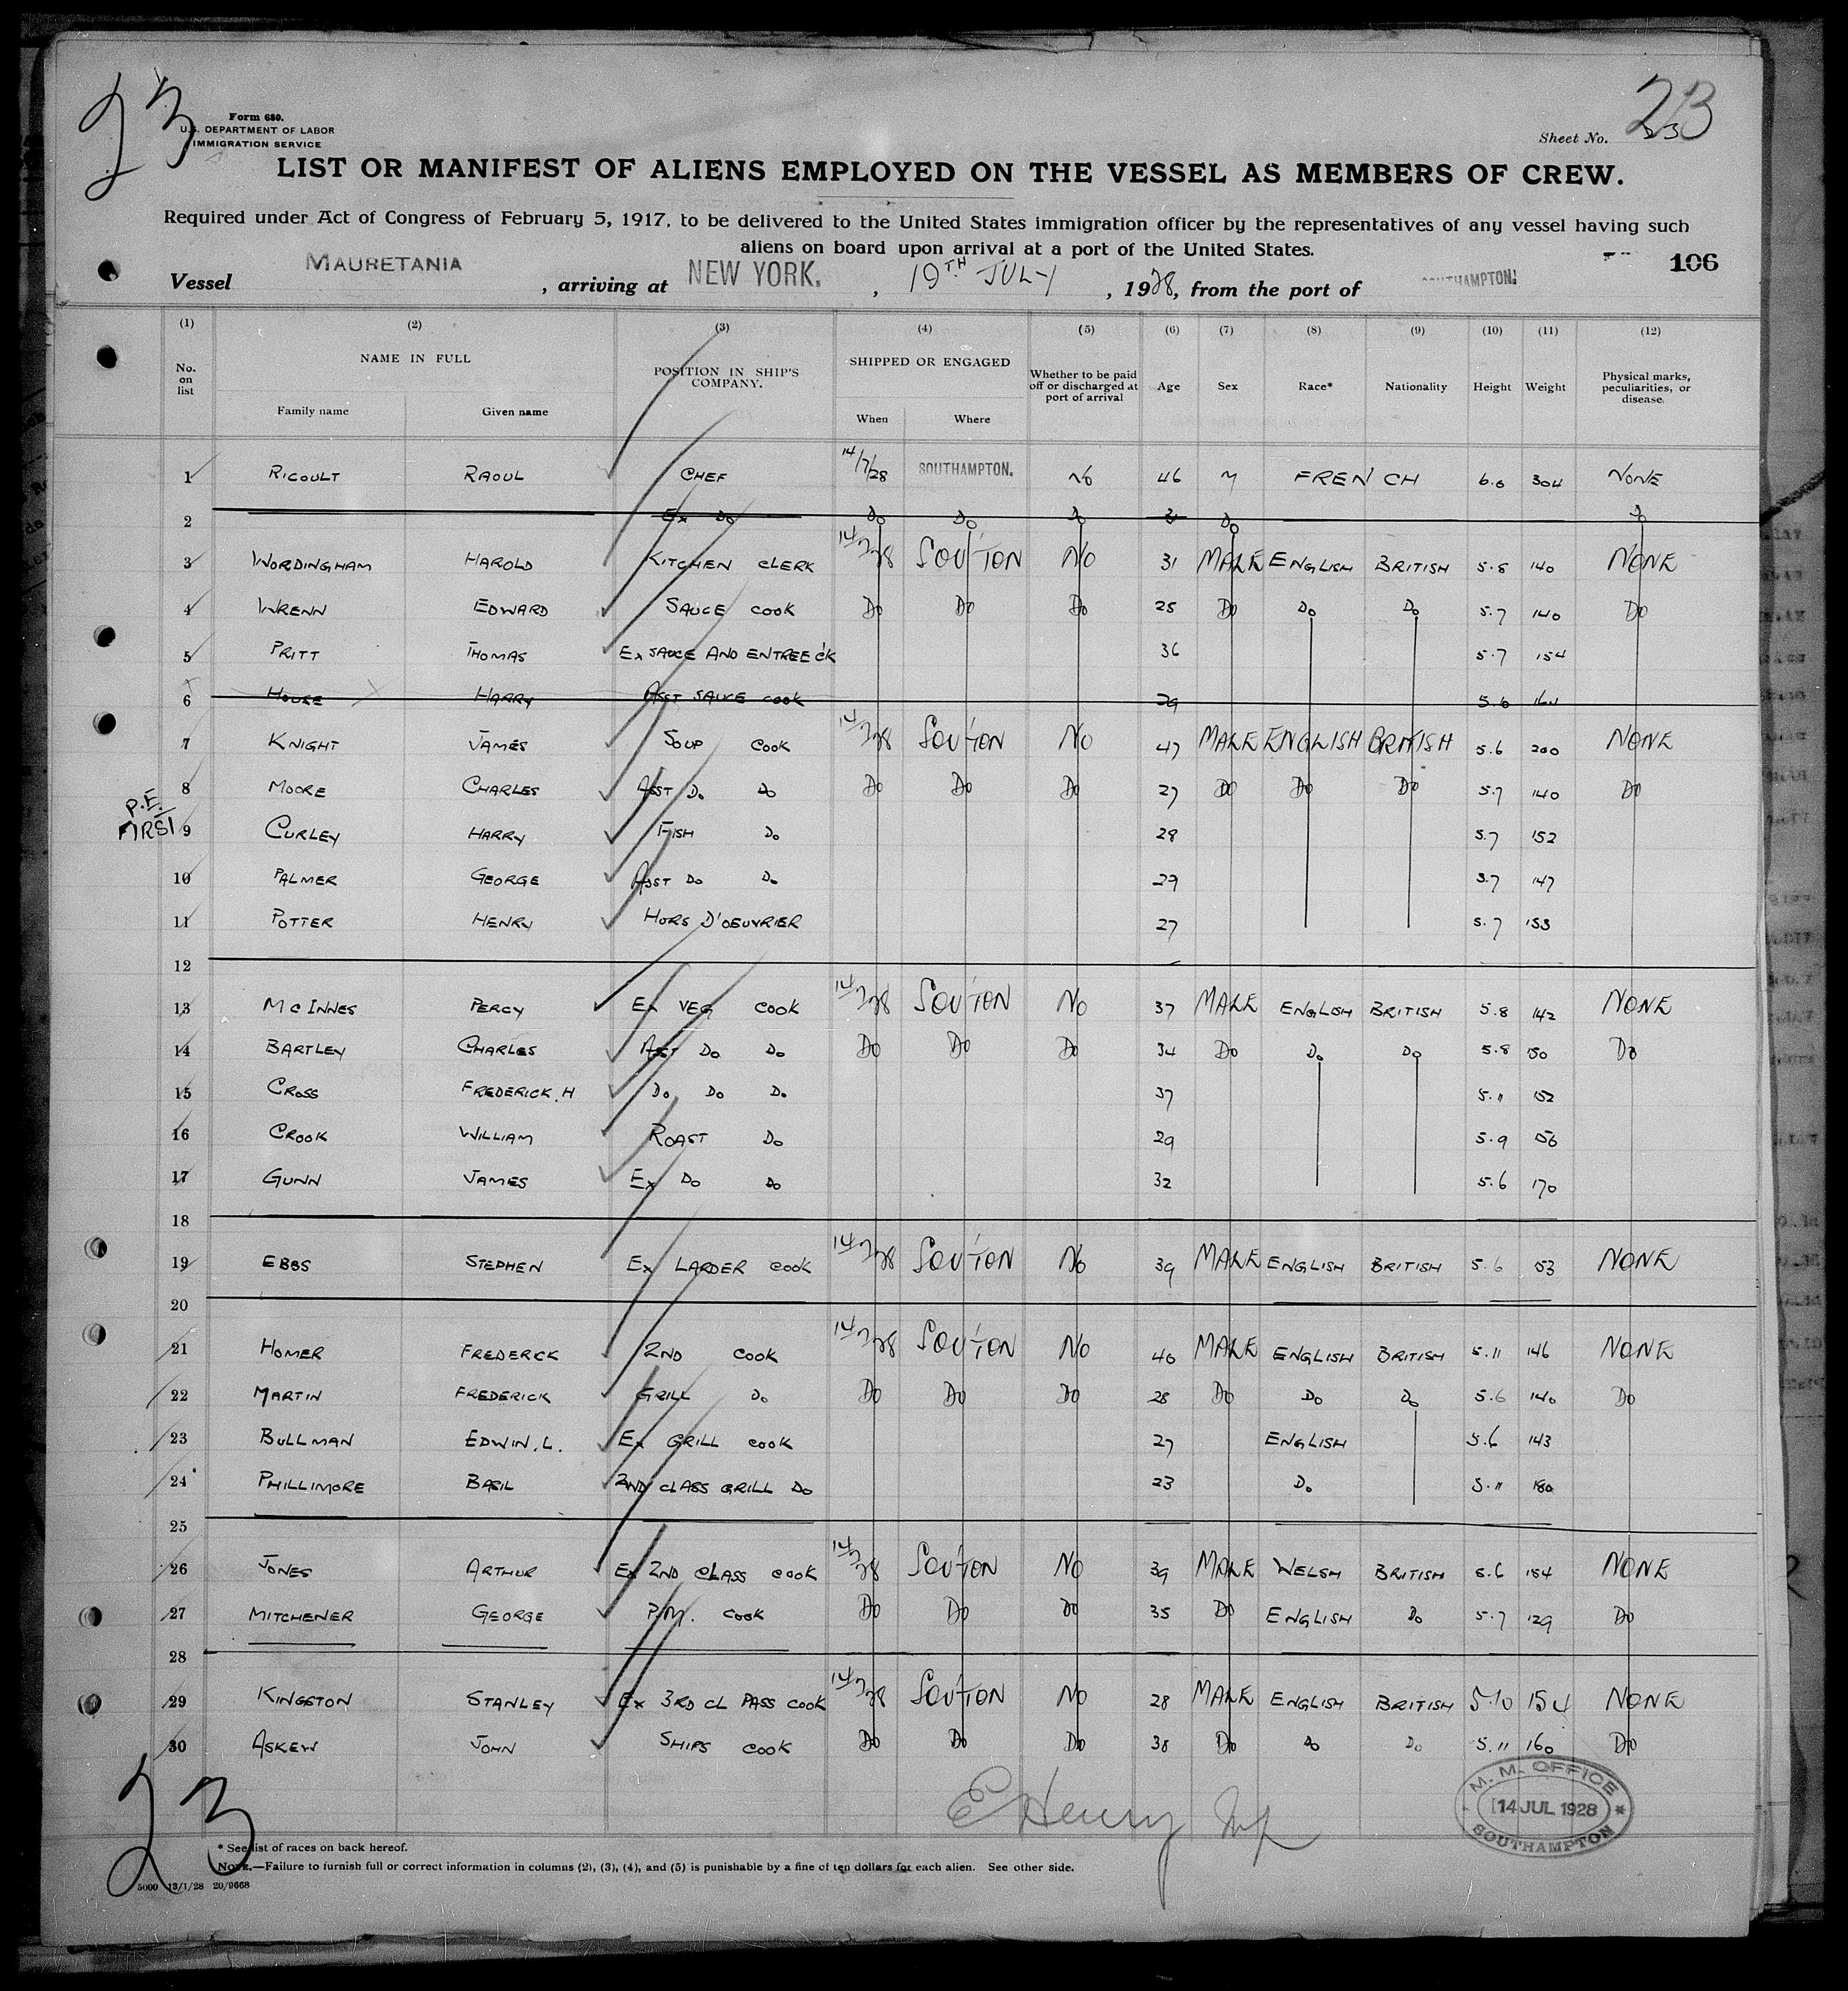 23
Form 680.
U.S. DEPARTMENT OF LABOR
IMMIGRATION SERVICE
Sheet No. 23
23
LIST OR MANIFEST OF ALIENS EMPLOYED ON THE VESSEL AS MEMBERS OF CREW.
Required under Act of Congress of February 5, 1917, to be delivered to the United States immigration officer by the representatives of any vessel having such
aliens on board upon arrival at a port of the United States.
106
Vessel MAURETANIA, arriving at NEW YORK., 19TH JULY, 1928, from the port of SOUTHAMPTON.
(1) (2) (3) (4) (5) (6) (7) (8) (9) (10) (11) (12)
No. on list NAME IN FULL Family name Given name POSITION IN SHIP'S COMPANY. SHIPPED OR ENGAGED When Where Whether to be paid off or discharged at port of arrival Age Sex Race* Nationality Height Weight Physical marks, peculiarities, or disease.
1 RICOULT RAOUL CHEF 14/7/28 SOUTHAMPTON. NO 46 M FRENCH 6.0 304 NONE
2 Ex Do Do Do Do Do
3 WORDINGHAM HAROLD KITCHEN CLERK 14/7/28 SOU'TON NO 31 MALE ENGLISH BRITISH 5.8 140 NONE
4 WRENN EDWARD SAUCE COOK Do Do Do 25 Do Do Do 5.7 140 Do
5 PRITT THOMAS Ex SAUCE AND ENTREE C'K 36 5.7 154
6 HOUSE HARRY ASST SAUCE COOK 29 5.6 164
7 KNIGHT JAMES SOUP COOK 14/7/28 SOU'TON NO 47 MALE ENGLISH BRITISH 5.6 200 NONE
8 MOORE CHARLES ASST Do Do Do Do Do 27 Do Do Do 5.7 140 Do
P.E. FIRST 9 CURLEY HARRY FISH Do 28 5.7 152
10 PALMER GEORGE ASST Do Do 29 5.7 147
11 POTTER HENRY HORS D'OEUVRIER 27 5.7 153
12
13 McINNES PERCY Ex VEG COOK 14/7/28 SOU'TON NO 37 MALE ENGLISH BRITISH 5.8 142 NONE
14 BARTLEY CHARLES ASST Do Do Do Do Do 34 Do Do Do 5.8 150 Do
15 CROSS FREDERICK.H Do Do Do 37 5.11 152
16 CROOK WILLIAM ROAST Do 29 5.9 156
17 GUNN JAMES Ex Do Do 32 5.6 170
18
19 EBBS STEPHEN Ex LARDER COOK 14/7/28 SOU'TON NO 39 MALE ENGLISH BRITISH 5.6 153 NONE
20
21 HOMER FREDERICK 2ND COOK 14/7/28 SOU'TON NO 40 MALE ENGLISH BRITISH 5.11 146 NONE
22 MARTIN FREDERICK GRILL Do Do Do Do 28 Do Do Do 5.6 140 Do
23 BULLMAN EDWIN.L. Ex GRILL COOK 27 ENGLISH 5.6 143
24 PHILLIMORE BASIL 2ND CLASS GRILL Do 23 Do 5.11 180
25
26 JONES ARTHUR Ex 2ND CLASS COOK 14/7/28 SOU'TON NO 39 MALE WELSH BRITISH 5.6 154 NONE
27 MITCHENER GEORGE P.M. COOK Do Do Do 35 Do ENGLISH Do 5.7 129 Do
28
29 KINGSTON STANLEY Ex 3RD CL PASS COOK 14/7/28 SOU'TON NO 28 MALE ENGLISH BRITISH 5.10 154 NONE
30 ASKEW JOHN SHIPS COOK Do Do Do 38 Do Do Do 5.11 160 Do
E Henry
M. M. OFFICE
14 JUL 1928
SOUTHAMPTON
23
* See list of races on back hereof.
NOTE.—Failure to furnish full or correct information in columns (2), (3), (4), and (5) is punishable by a fine of ten dollars for each alien. See other side.
5000 13/1/28 20/9668